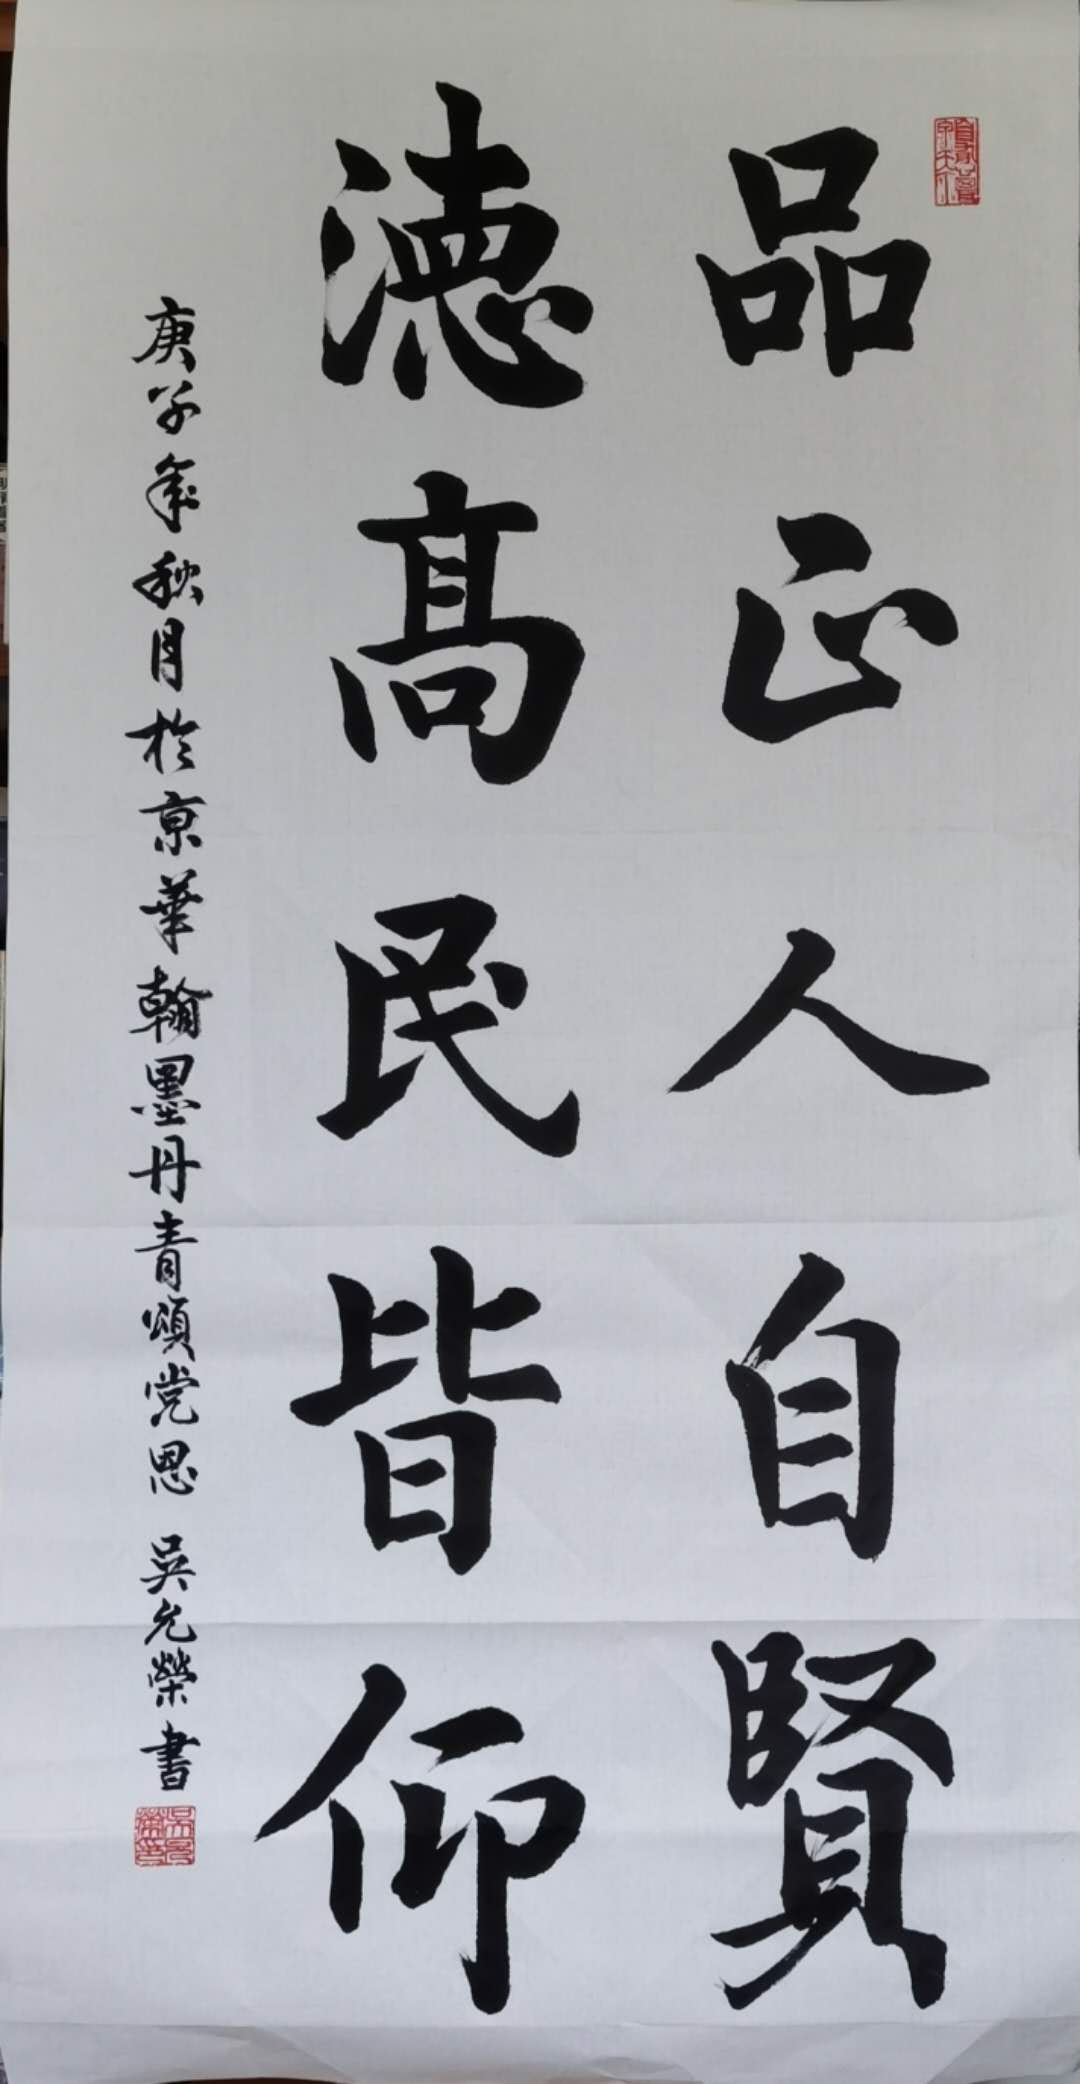 品正人自賢
德高民皆仰
庚子年秋月於京華翰墨丹青頌党恩 吴允榮書